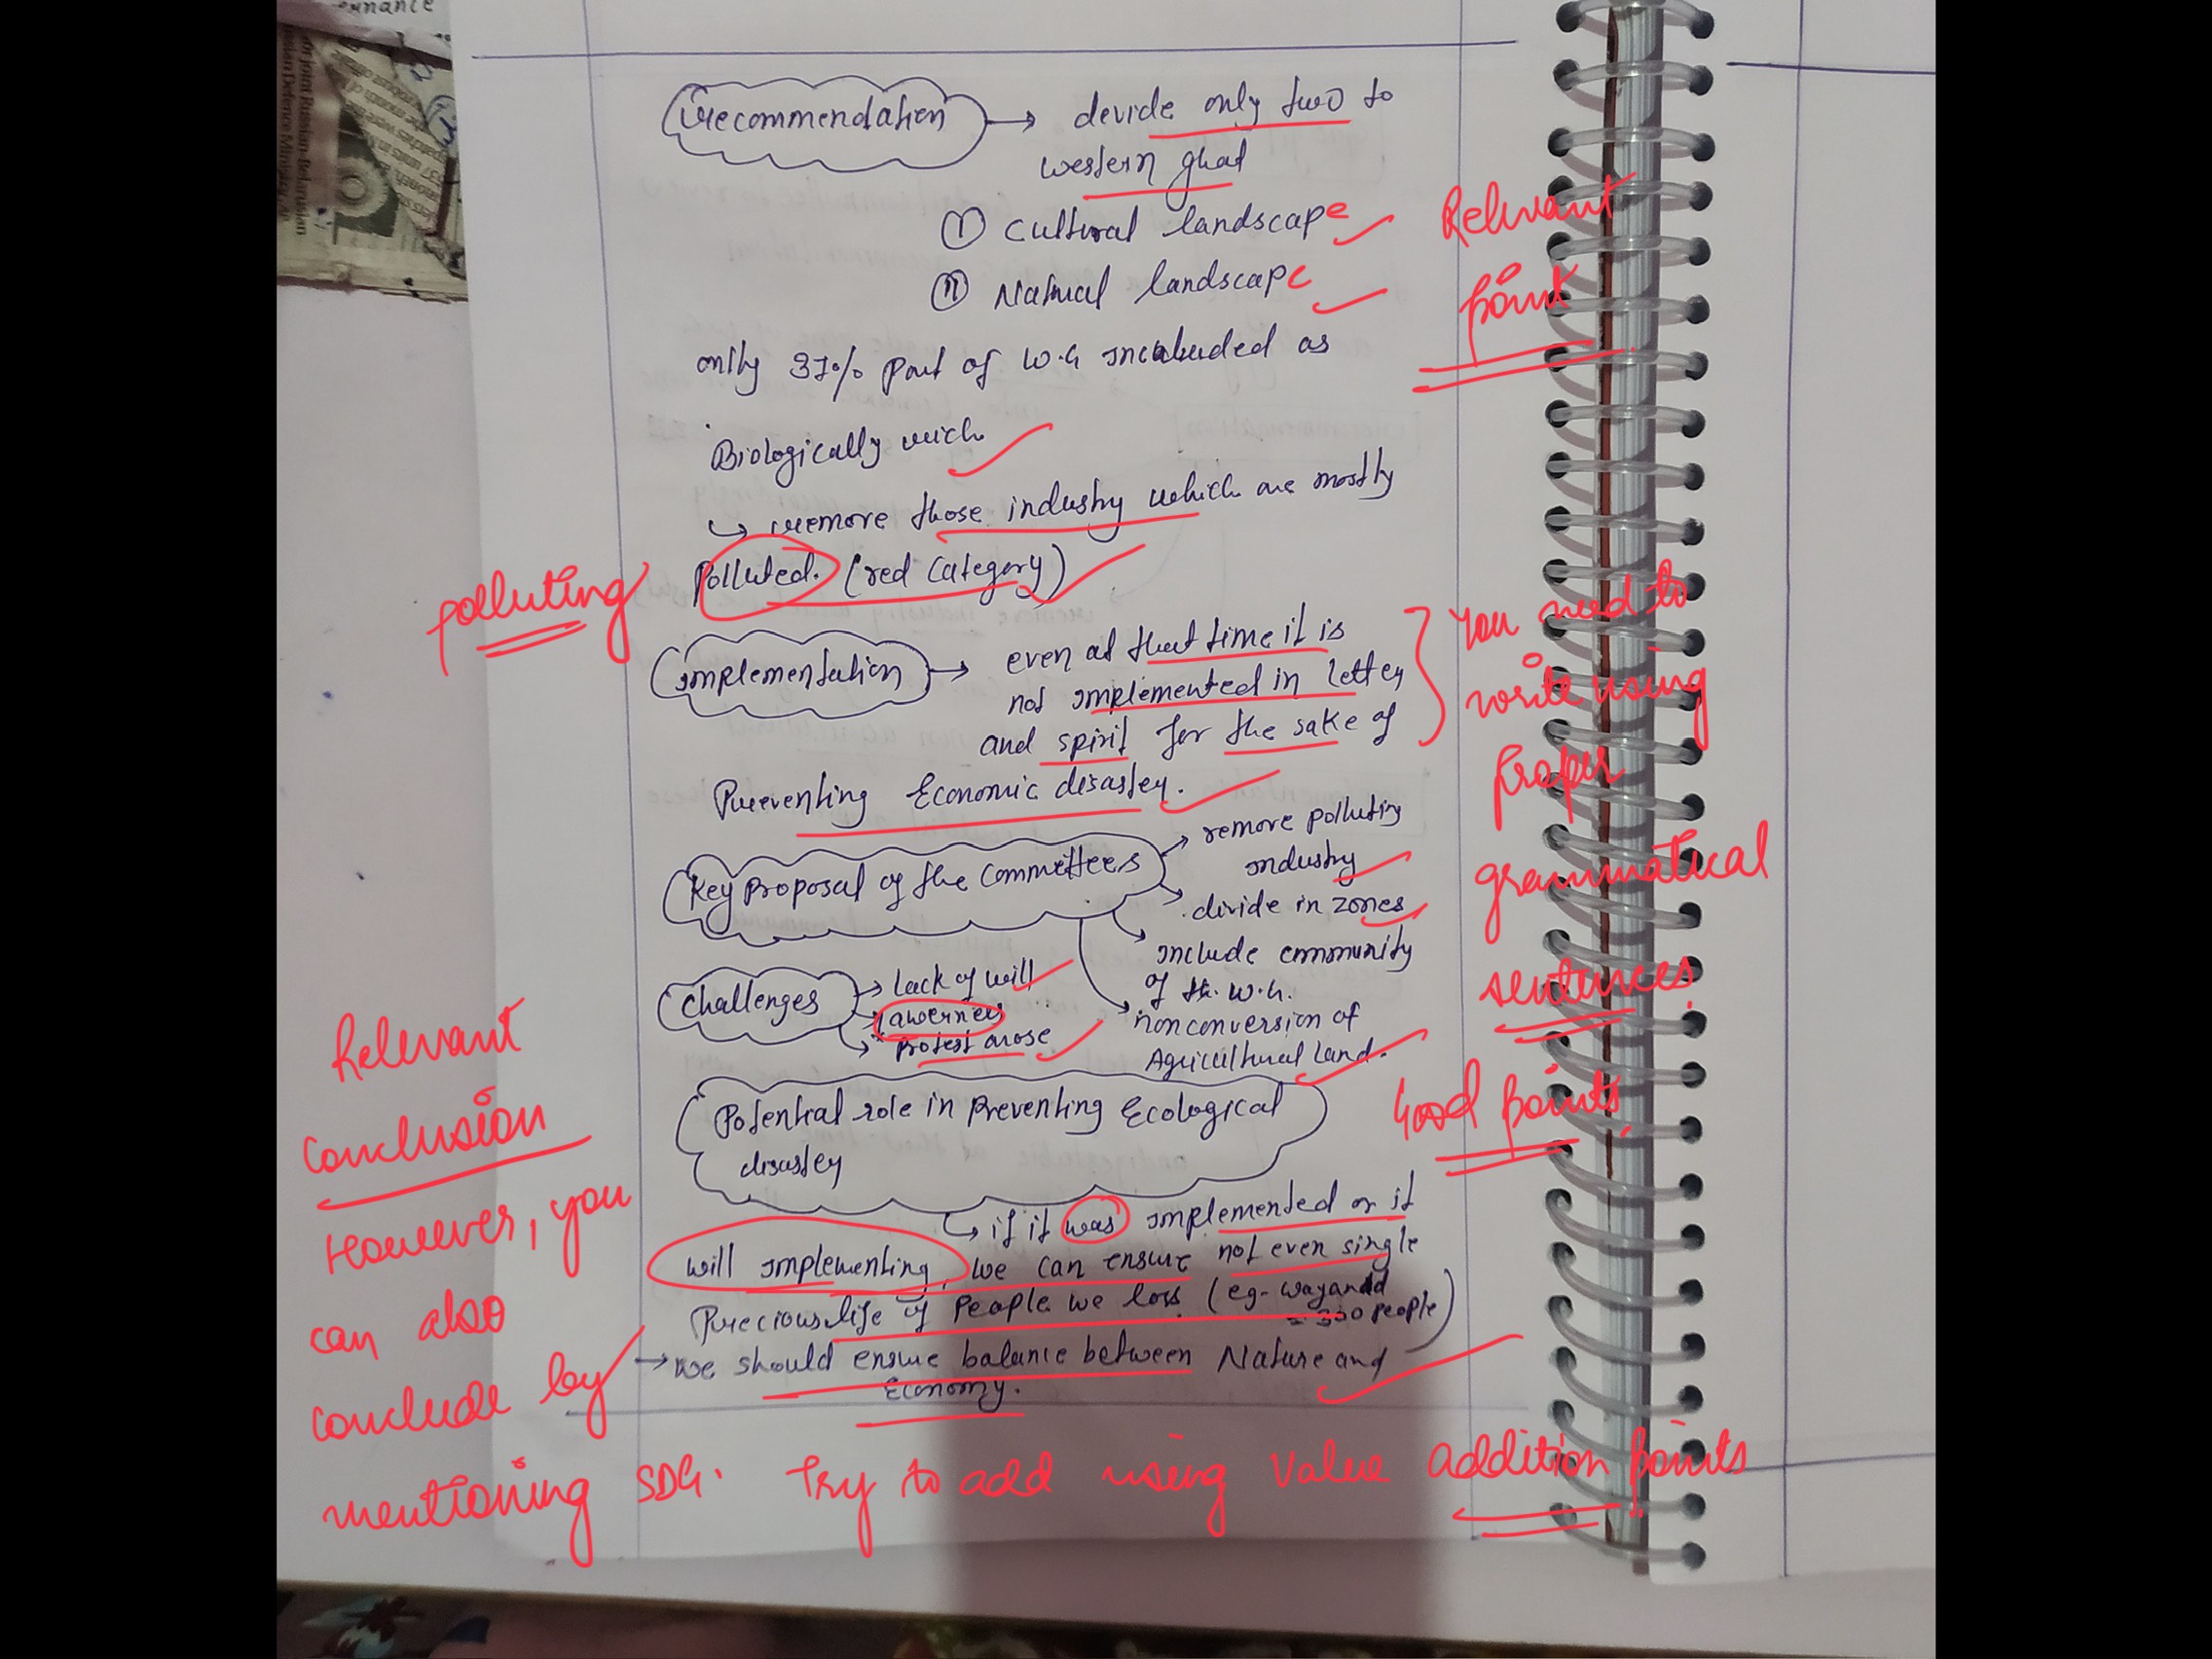 ernance
recommendation → devide only two to
western ghat
① cultural landscape
② Natural landscape
Relevant
point
only 37% part of W.G included as
Biologically rich
↳ remore those industry which are mostly
Polluted. (red Category)
polluting
implementation → even at that time it is
not implemented in letter
and spirit for the sake of
Preventing Economic disaster.
You need to
write using
proper
grammatical
sentences
Key Proposal of the Committees
→ remove polluting
industry
→ divide in zones
→ include community
of th. W.G.
→ nonconversion of
Agricultural Land.
Challenges → lack of will
→ awernes
→ Protest arose
Good points
Potential role in Preventing Ecological
disaster
↳ if it was implemented or it
will implementing, we can ensure not even single
Precious life of People we loss (eg- wayanad
= 330 people)
→ we should ensure balance between Nature and
Economy.
Relevant
conclusion
However, you
can also
conclude by
mentioning SDG. Try to add using value addition points